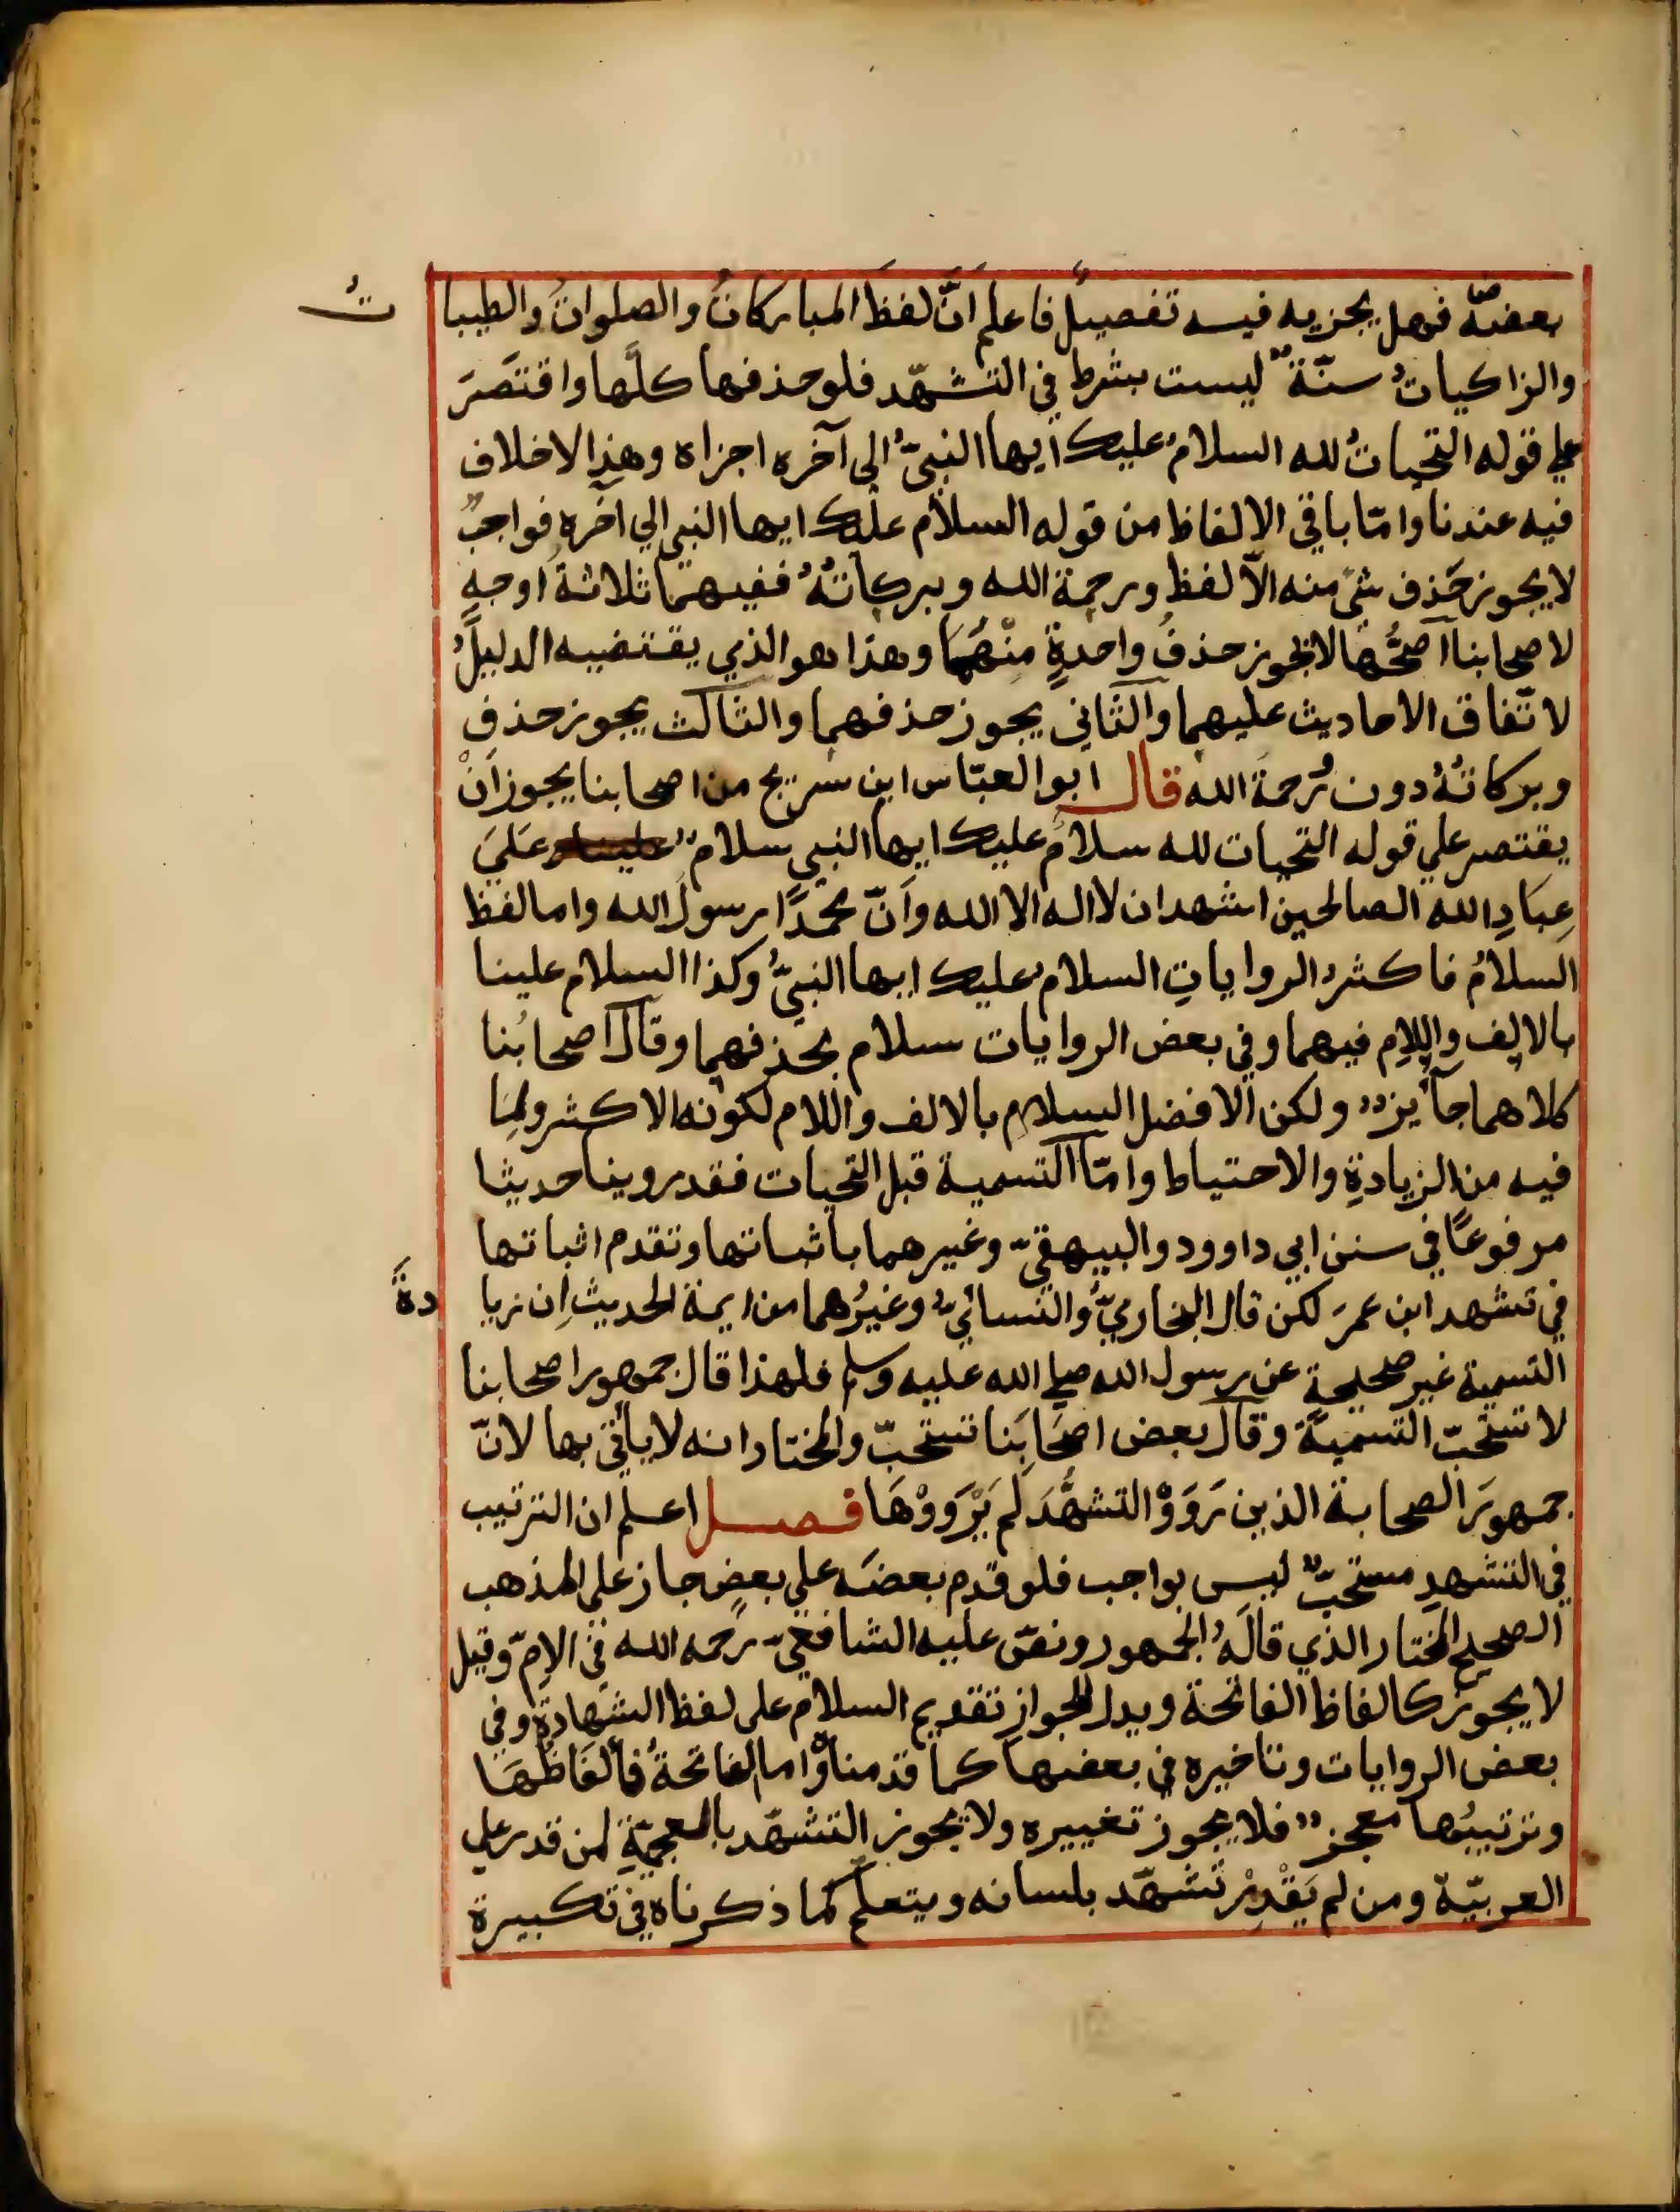 بعضَه فهل يجزيه فيه تفصيلٌ فاعلم اَنَّ لفظَ المباركاتُ والصلواتُ والطيباتُ
والزاكياتُ سنّةٌ ليست بشرط في التشهّد فلو حذفها كلَّها واقتَصَرَ
على قوله التحياتُ لله السلامُ عليك ايها النبىُّ الى آخره اجزاه وهذا لاخلاف
فيه عندنا وامّا باقي الالفاظ من قوله السلام عليك ايها النبي الي آخره فواجبٌ
لا يجوز حَذف شئ منه الاّ لفظ ورحمة الله وبركاتهُ ففيهما ثلاثةُ اوجهٍ
لاصحابنا اَصحُّها لا يجوز حذفُ واحدةٍ مِنْهُمَا وهذا هو الذي يقتضيه الدليلُ
لاتّفاق الاحاديث عليهما والثّاني يجوز حذفهما والثالث يجوز حذف
وبركاتهُ دون رَحمة الله قال ابو العبّاس ابن سريج من اصحابنا يجوز اَنْ
يقتصر علي قوله التحيات لله سلامٌ عليك ايها النبي سلامٌ عَلَيَ
عِبَادِ الله الصالحين اشهد ان لا اله الا الله واَنّ محمّدًا رسولُ الله واما لفظ
السلامُ فاكثرُ الرواياتِ السلام عليك ايها النبىُّ وكذا السلام علينا
بالالف واللام فيهما وفي بعض الروايات سلام بحذفهما وقال اصحابُنا
كلاهما جآيزٌ ولكن الافضل السلام بالالف واللام لكونه الاكثر ولِمَا
فيه من الزيادةِ والاحتياط وامّا التسمية قبل التحيات فقد روينا حديثا
مرفوعًا في سنن ابي داوود والبيهقيّ وغيرهما باثباتها وتقدم اثباتها
في تشهد ابن عمرَ لكن قال البخاريُّ والنسائيُّ وغيرُهما من ايمة الحديث اِن زيادةَ
التسمية غير صحيحة عن رسول الله صلي الله عليه وسلم فلهذا قال جمهور اصحابنا
لا تستحبّ التسميةُ وقال بعض اصحَابِنا تستحبّ والمختار انه لا يأتي بها لانّ
جمهورَ الصحابة الذين رَوَوْا التشهُّدَ لم يَرْوَوْهَا فصل اعلم ان الترتيب
في التشهدِ مستحبٌّ ليس بواجب فلو قدم بعضَه علي بعضٍ جاز على المذهب
الصحيح المختار الذي قالَهُ الجمهور ونصّ عليه الشافعيّ رحمه الله في الامّ وقيل
لا يجوزُ كالفاظ الفاتحة ويدل للجواز تقديم السلام على لفظ الشهادةِ وفي
بعض الروايات وتاخيره في بعضها كما قدمناهُ واما الفاتحةُ فألفَاظُهَا
وترتيبُها معجزٌ فلا يجوز تغييره ولا يجوز التشهّد بالعجميّةِ لمن قدر علي
العربيّة ومن لم يَقْدِرْ تشهّد بلسانه ويتعلّم كما ذكرناه في تكبيرة